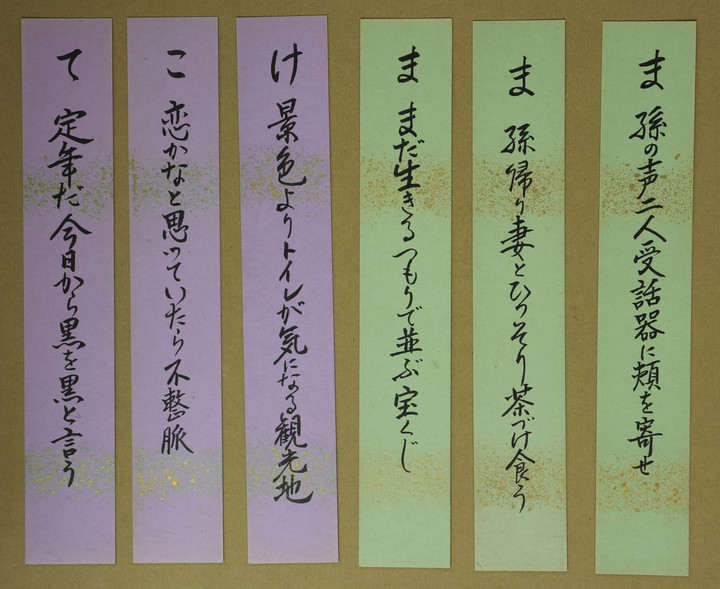 ま 孫の声二人受話器に頬を寄せ
ま 孫帰り妻とひっそり茶づけ食う
ま まだ生きるつもりで並ぶ宝くじ
け 景色よりトイレが気になる観光地
こ 恋かなと思っていたら不整脈
て 定年だ今日から黒を黒と言う